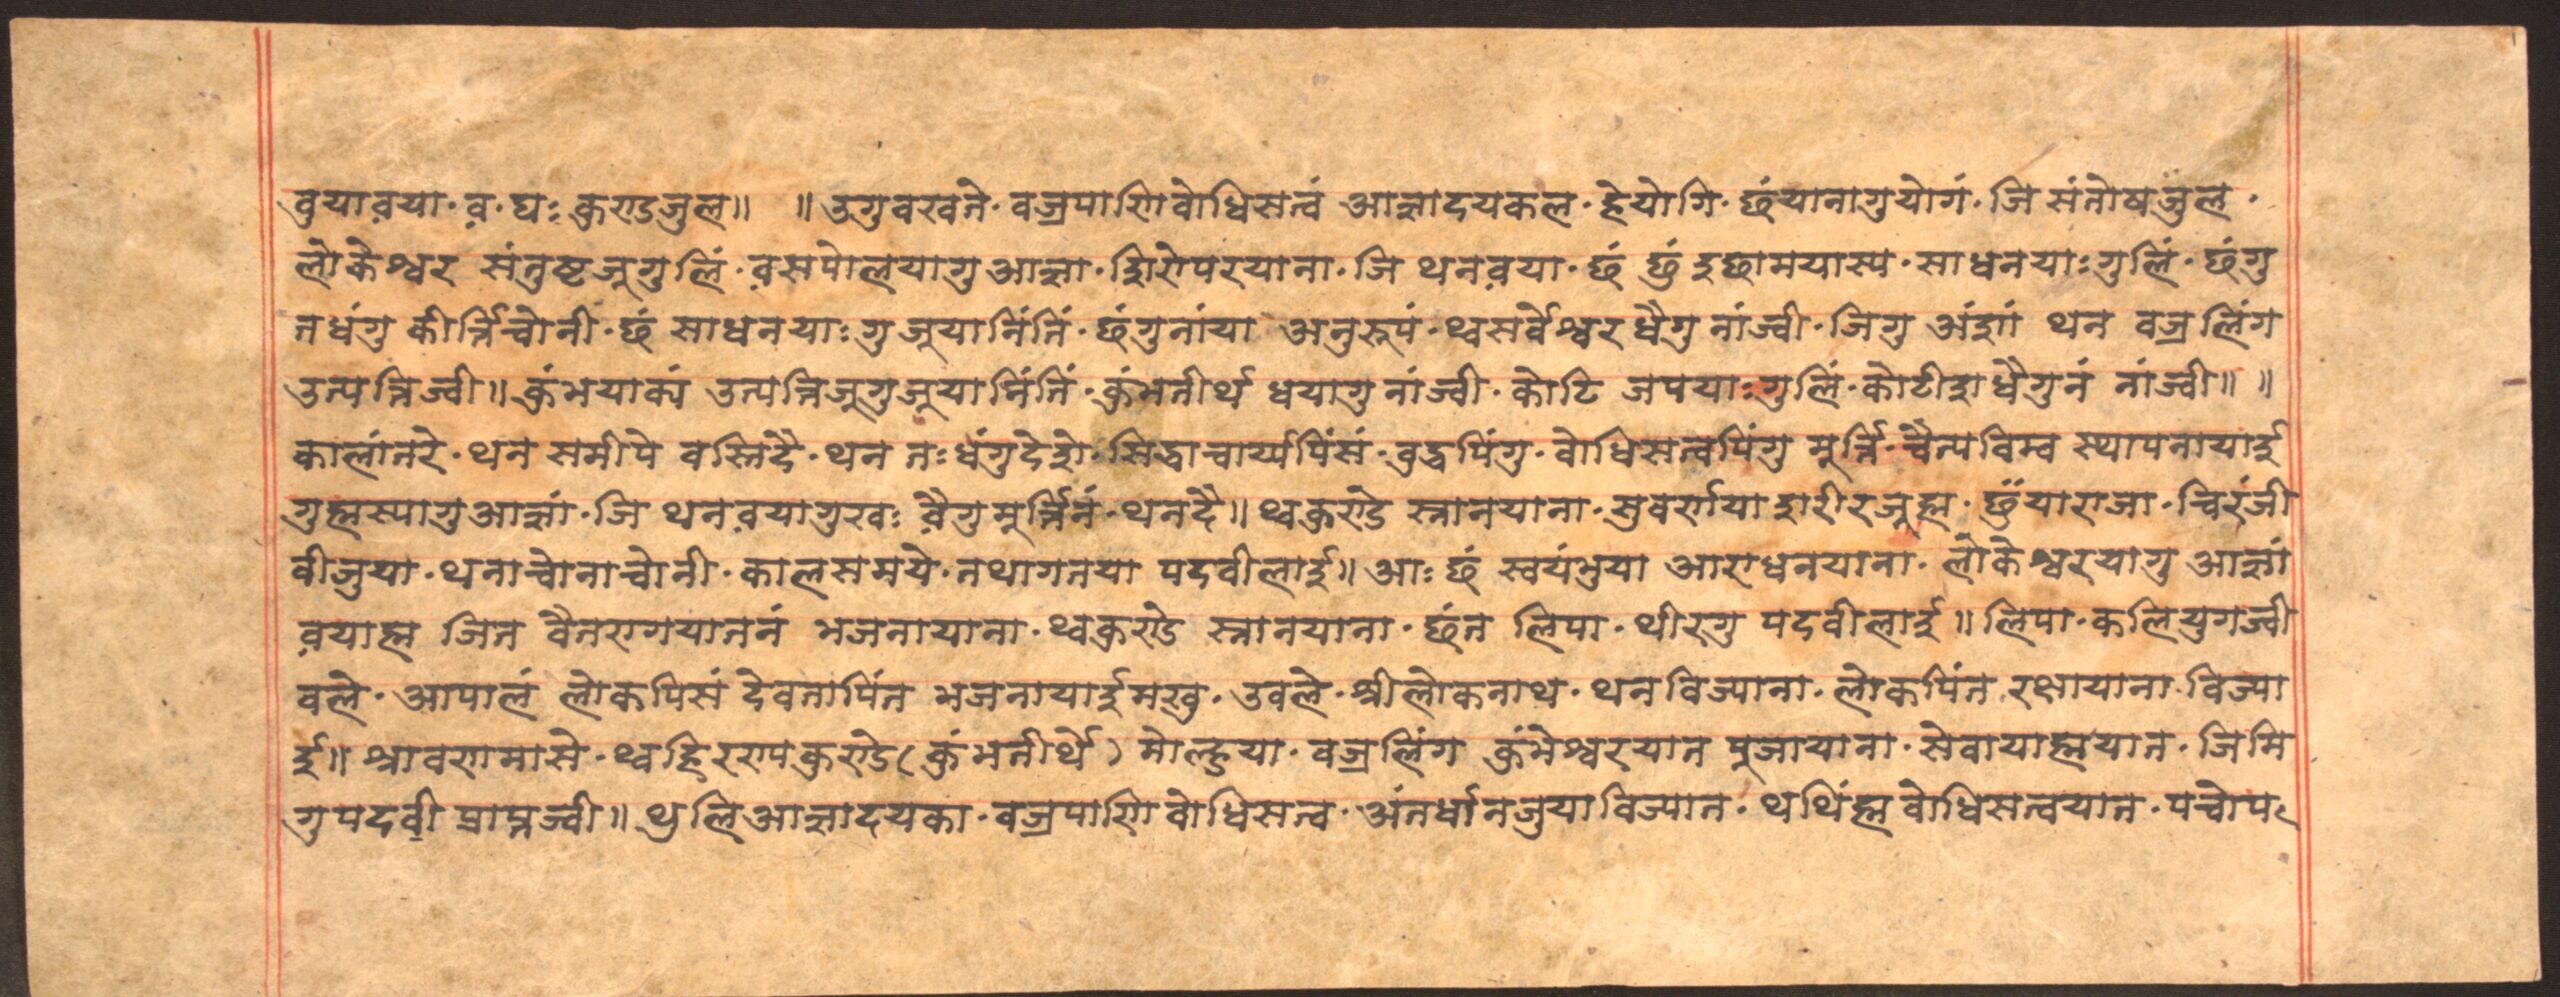 वुयाव़या·व़·घः कुण्डजुल॥ ॥उगुवखते·वज्रपाणिवोधिसत्वं आज्ञादयकल·हेयोगि·छंयानागुयोगं·जि संतोषजुल·
लोकेश्वर संतुष्टजूगुलिं·व़सपोलयागुआज्ञा·शिरोपरयाना·जि थनव़या·छं छुं इछामयास्य·साधनयाःगुलिं·छंगु
तधंगु कीर्त्तिच्वोनी·छं साधनयाःगुजूयानिंतिं·छंगुनांया अनुरुपं·थ्वसर्वेश्वरधैगु नांज्वी·जिगु अंशं थन वज्रलिंग
उत्पत्तिज्वी॥कुंभयाक्यं उत्पत्तिजूगुजूयानिंतिं·कुंभतीर्थ धयागु नांज्वी·कोटि जपयाःगुलिं·कोटीशधैगुनं नांज्वी॥ ॥
कालांतरे·थन समीपे वस्तिदै·थन तःधंगुदेशे·सिद्धाचार्य्यपिंसं·वुद्धपिंगु·वोधिसत्वपिंगु मूर्त्ति·चैत्यविम्व स्थापनायाई
गुह्मस्यागुआज्ञां·जि थनव़यागुखः व़ैगुमूर्त्तिनं·थनदै॥थ्वकुण्डे स्नानयाना·सुवर्णया शरीरजूह्म·छुँयाराजा·चिरंजी
वीजुया·थनाच्वोनाच्वोनी·कालसमये·तथागतया पदवीलाई॥आः छं स्वयंभुया आराधनयाना·लोकेश्वरयागु आज्ञां
व़याह्म जित वैतरागयाननं भजनायाना·थ्वकुण्डे स्नानयाना·छंत लिपा·थीरगु पदवीलाई॥लिपा·कलियुगज्वी
वले·आपालं लोकपिसं देवतापिंत भजनायाईमखु·उवले·श्रीलोकनाथ·थनविज्याना·लोकपिंत रक्षायाना·विज्या
ई॥श्रावणमासे·थ्वहिरण्यकुण्डे(कुंभतीर्थे)मोल्हुया·वज्रलिंग कुंभेश्वरयात पूजायाना·सेवायाह्मयात·जिमि
गुपदवी प्राप्तज्वी॥थुलिआज्ञादयका·वज्रपाणिवोधिसत्व·अंतर्धानजुयाविज्यात·थथिंह्म वोधिसत्वयात·पंचोप